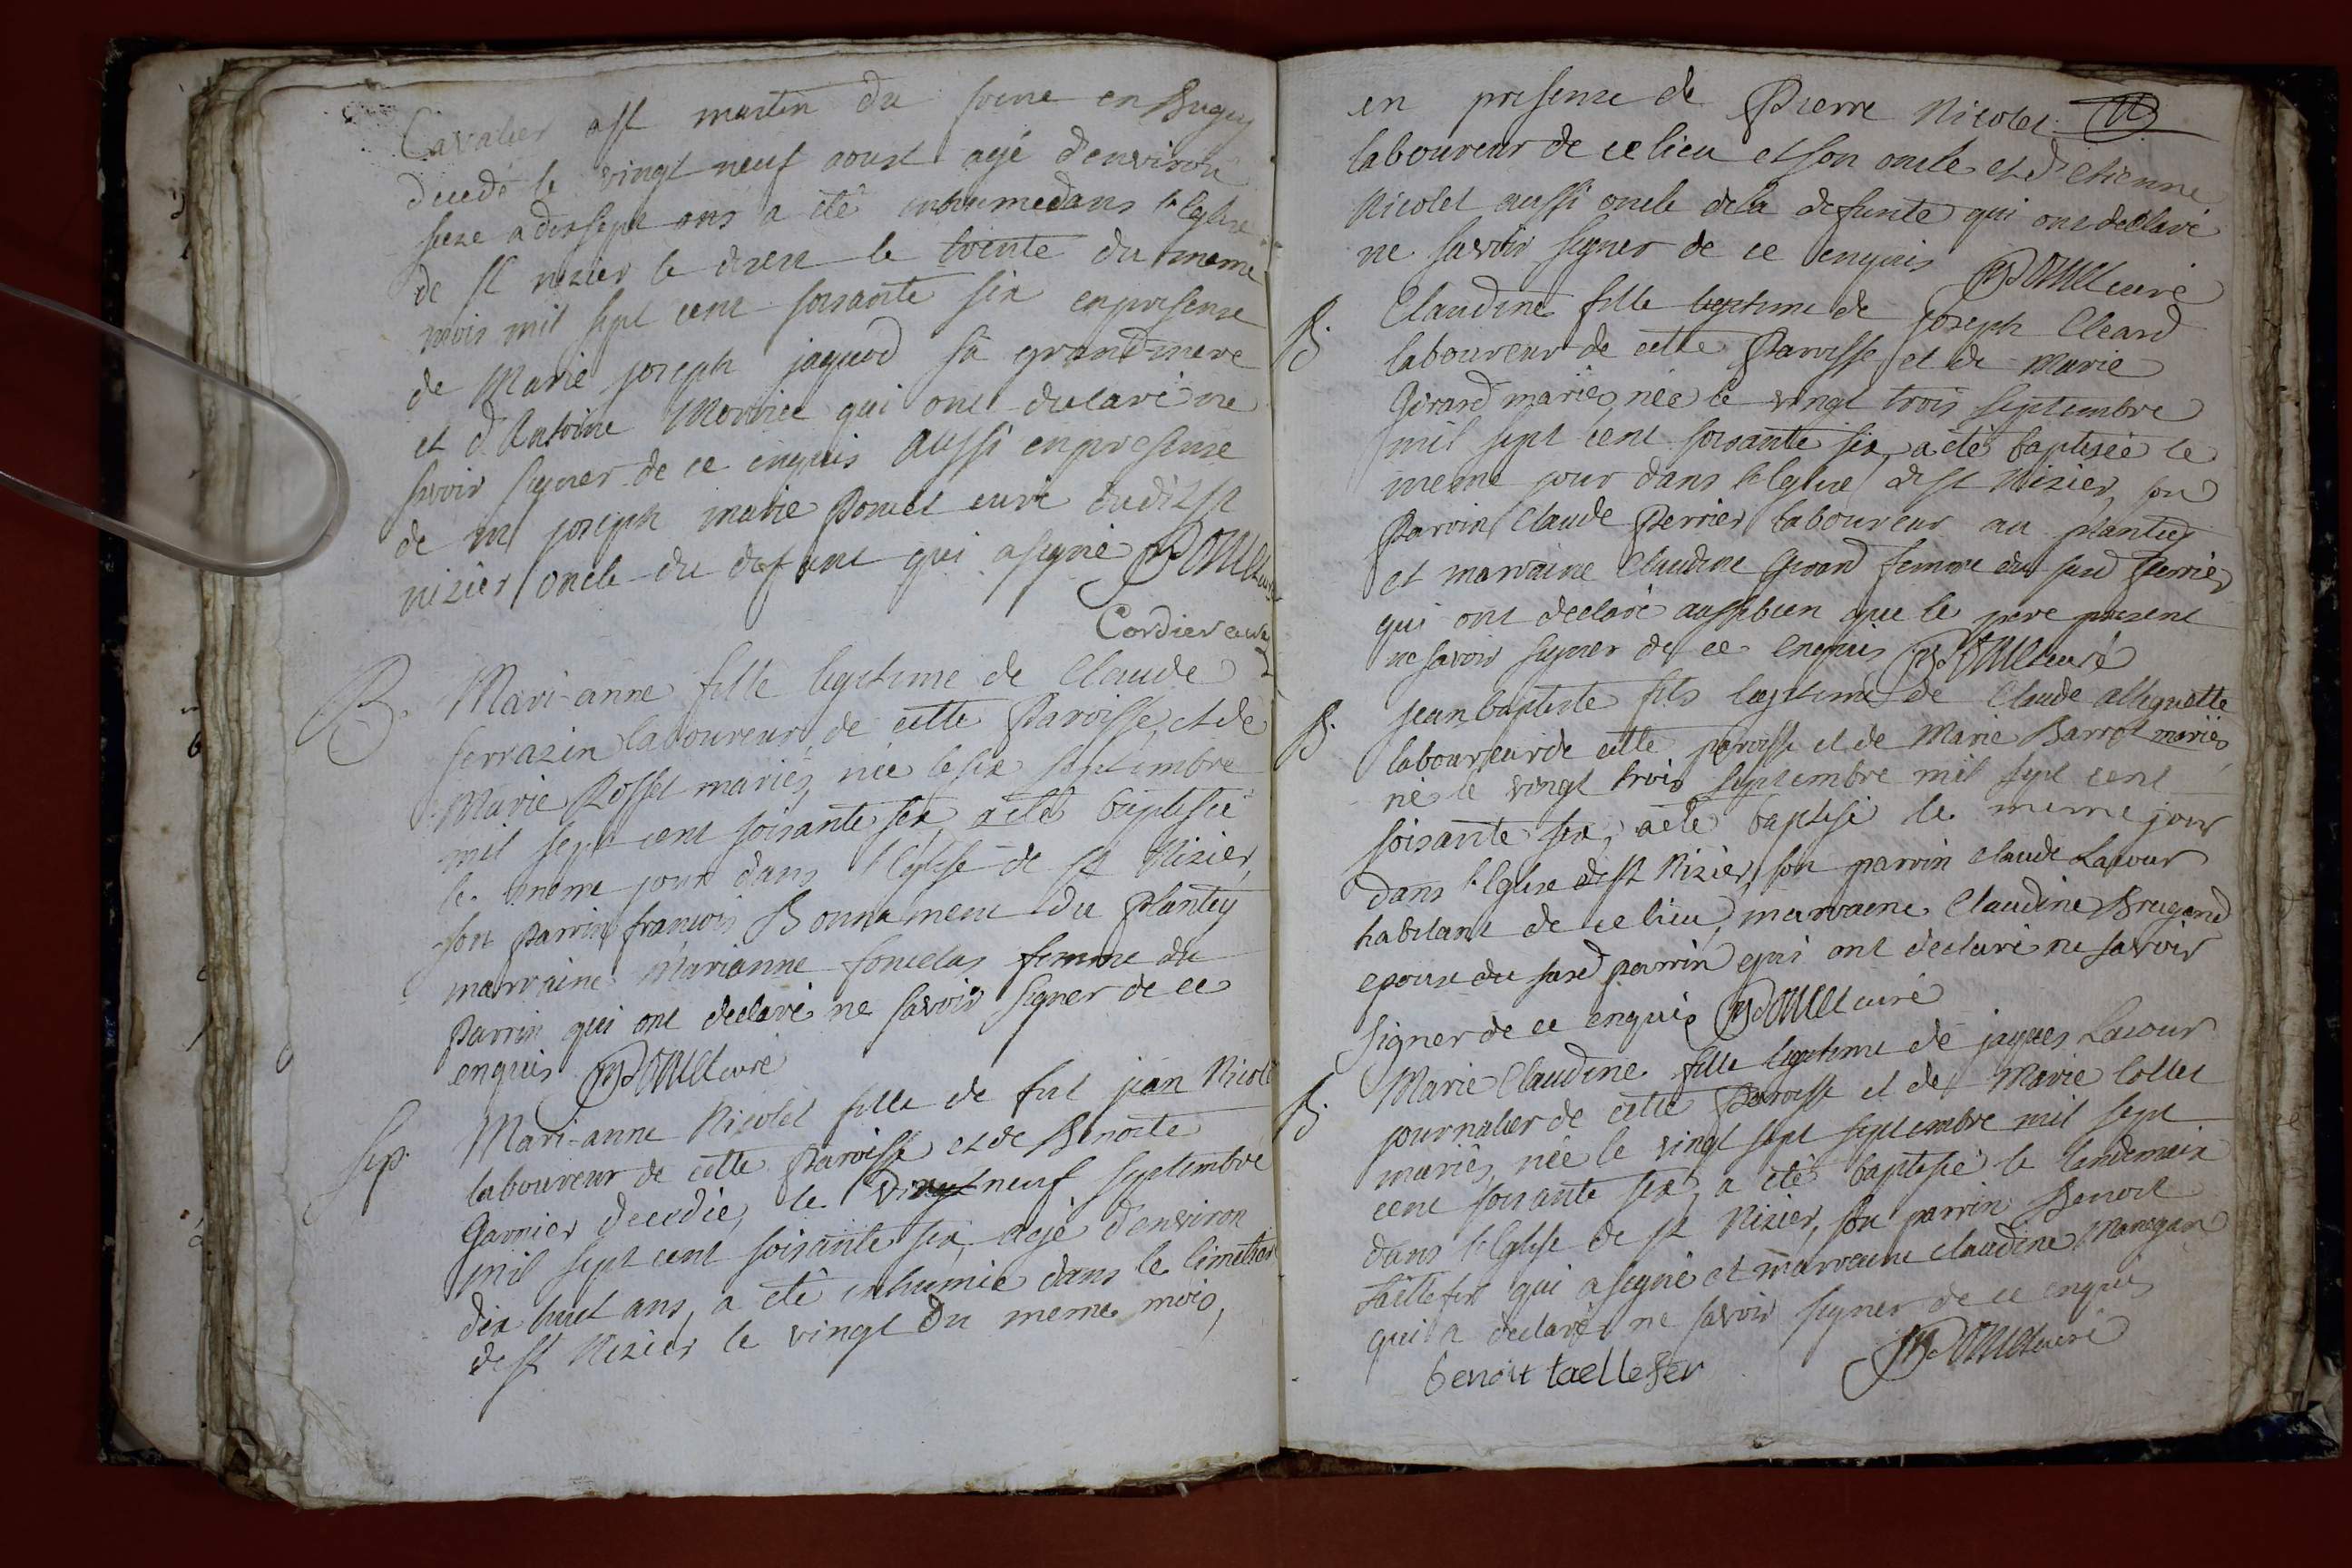 Cavalier a st martin du frene en Bugey
decedé le vingt neuf aoust agé denviron
seize a dixsept ans a eté inhumé dans l'Eglise
de st nizier le desert le trente du meme
mois mil sept cent soixante six en presence
de Marie joseph jaquod sa grand mere
et d'Antoine qui ont declaré ne
savoir signer de ce enquis aussi en presence
de m joseph marie Poncet curé dudit st
nizier oncle du defunt qui a signé Poncet curé
Cordier curé
B. Mari-anne fille legitime de Claude
ferrazin laboureur de cette Paroisse, et de
Marie Rosset mariés, née le six septembre
mil sept cent soixante six, a eté baptisée
le meme jour dans l'Eglise de st Nizier,
son Parrin françois Bonnament du Plantey
marraine Marianne foncelas femme du
Parrin qui ont declaré ne savoir signer de ce
enquis Poncet curé
Sep. Mari-anne Nicolet fille de fut jean Nicolet
laboureur de cette Paroisse et de Benoite
Garnier decedée, le dixneuf septembre
mil sept cent soixante six, agé d'environ
dix huit ans, a eté inhumée dans le Cimetier
de st Nizier le vingt du meme mois,
en presence de Pierre Nicolet
laboureur de ce lieu et son oncle et d'etienne
Nicolet aussi oncle de la defunte qui ont declaré
ne savoir signer de ce enquis Poncet curé
B. Claudine fille legitime de joseph Cleard
laboureur de cette Paroisse et de Marie
Girard mariés, née le vingt trois septembre
mil sept cent soixante six, a eté baptisée le
meme jour dans l'Eglise de st Nizier, son
Parrin Claude Perrier laboureur au plantey
et marraine Claudine Girard femme du susd Perrier
qui ont declaré aussi bien que le pere present
ne savoir signer de ce enquis Poncet curé
B. jean baptiste fils legitime de Claude allignette
laboureur de cette paroisse et de Marie Barrot mariés,
né le vingt trois septembre mil sept cent
soixante six, a eté baptisé le meme jour
dans l'Eglise de st Nizier, son parrin claude Lacour
habitant de ce lieu, marraine Claudine Brugand
epouse du susd parrin qui ont declaré ne savoir
signer de ce enquis Poncet curé
B. Marie Claudine fille legitime de jaques Lacour
journalier de cette Paroisse et de Marie Collet
mariés, née le vingt sept septembre mil sept
cent soixante six, a eté baptisée le lendemain
dans l'Eglise de st Nizier, son parrin Benoit
taillefer qui a signé et marraine claudine
qui a declaré ne savoir signer de ce enquis
benoit taellefer Poncet curé